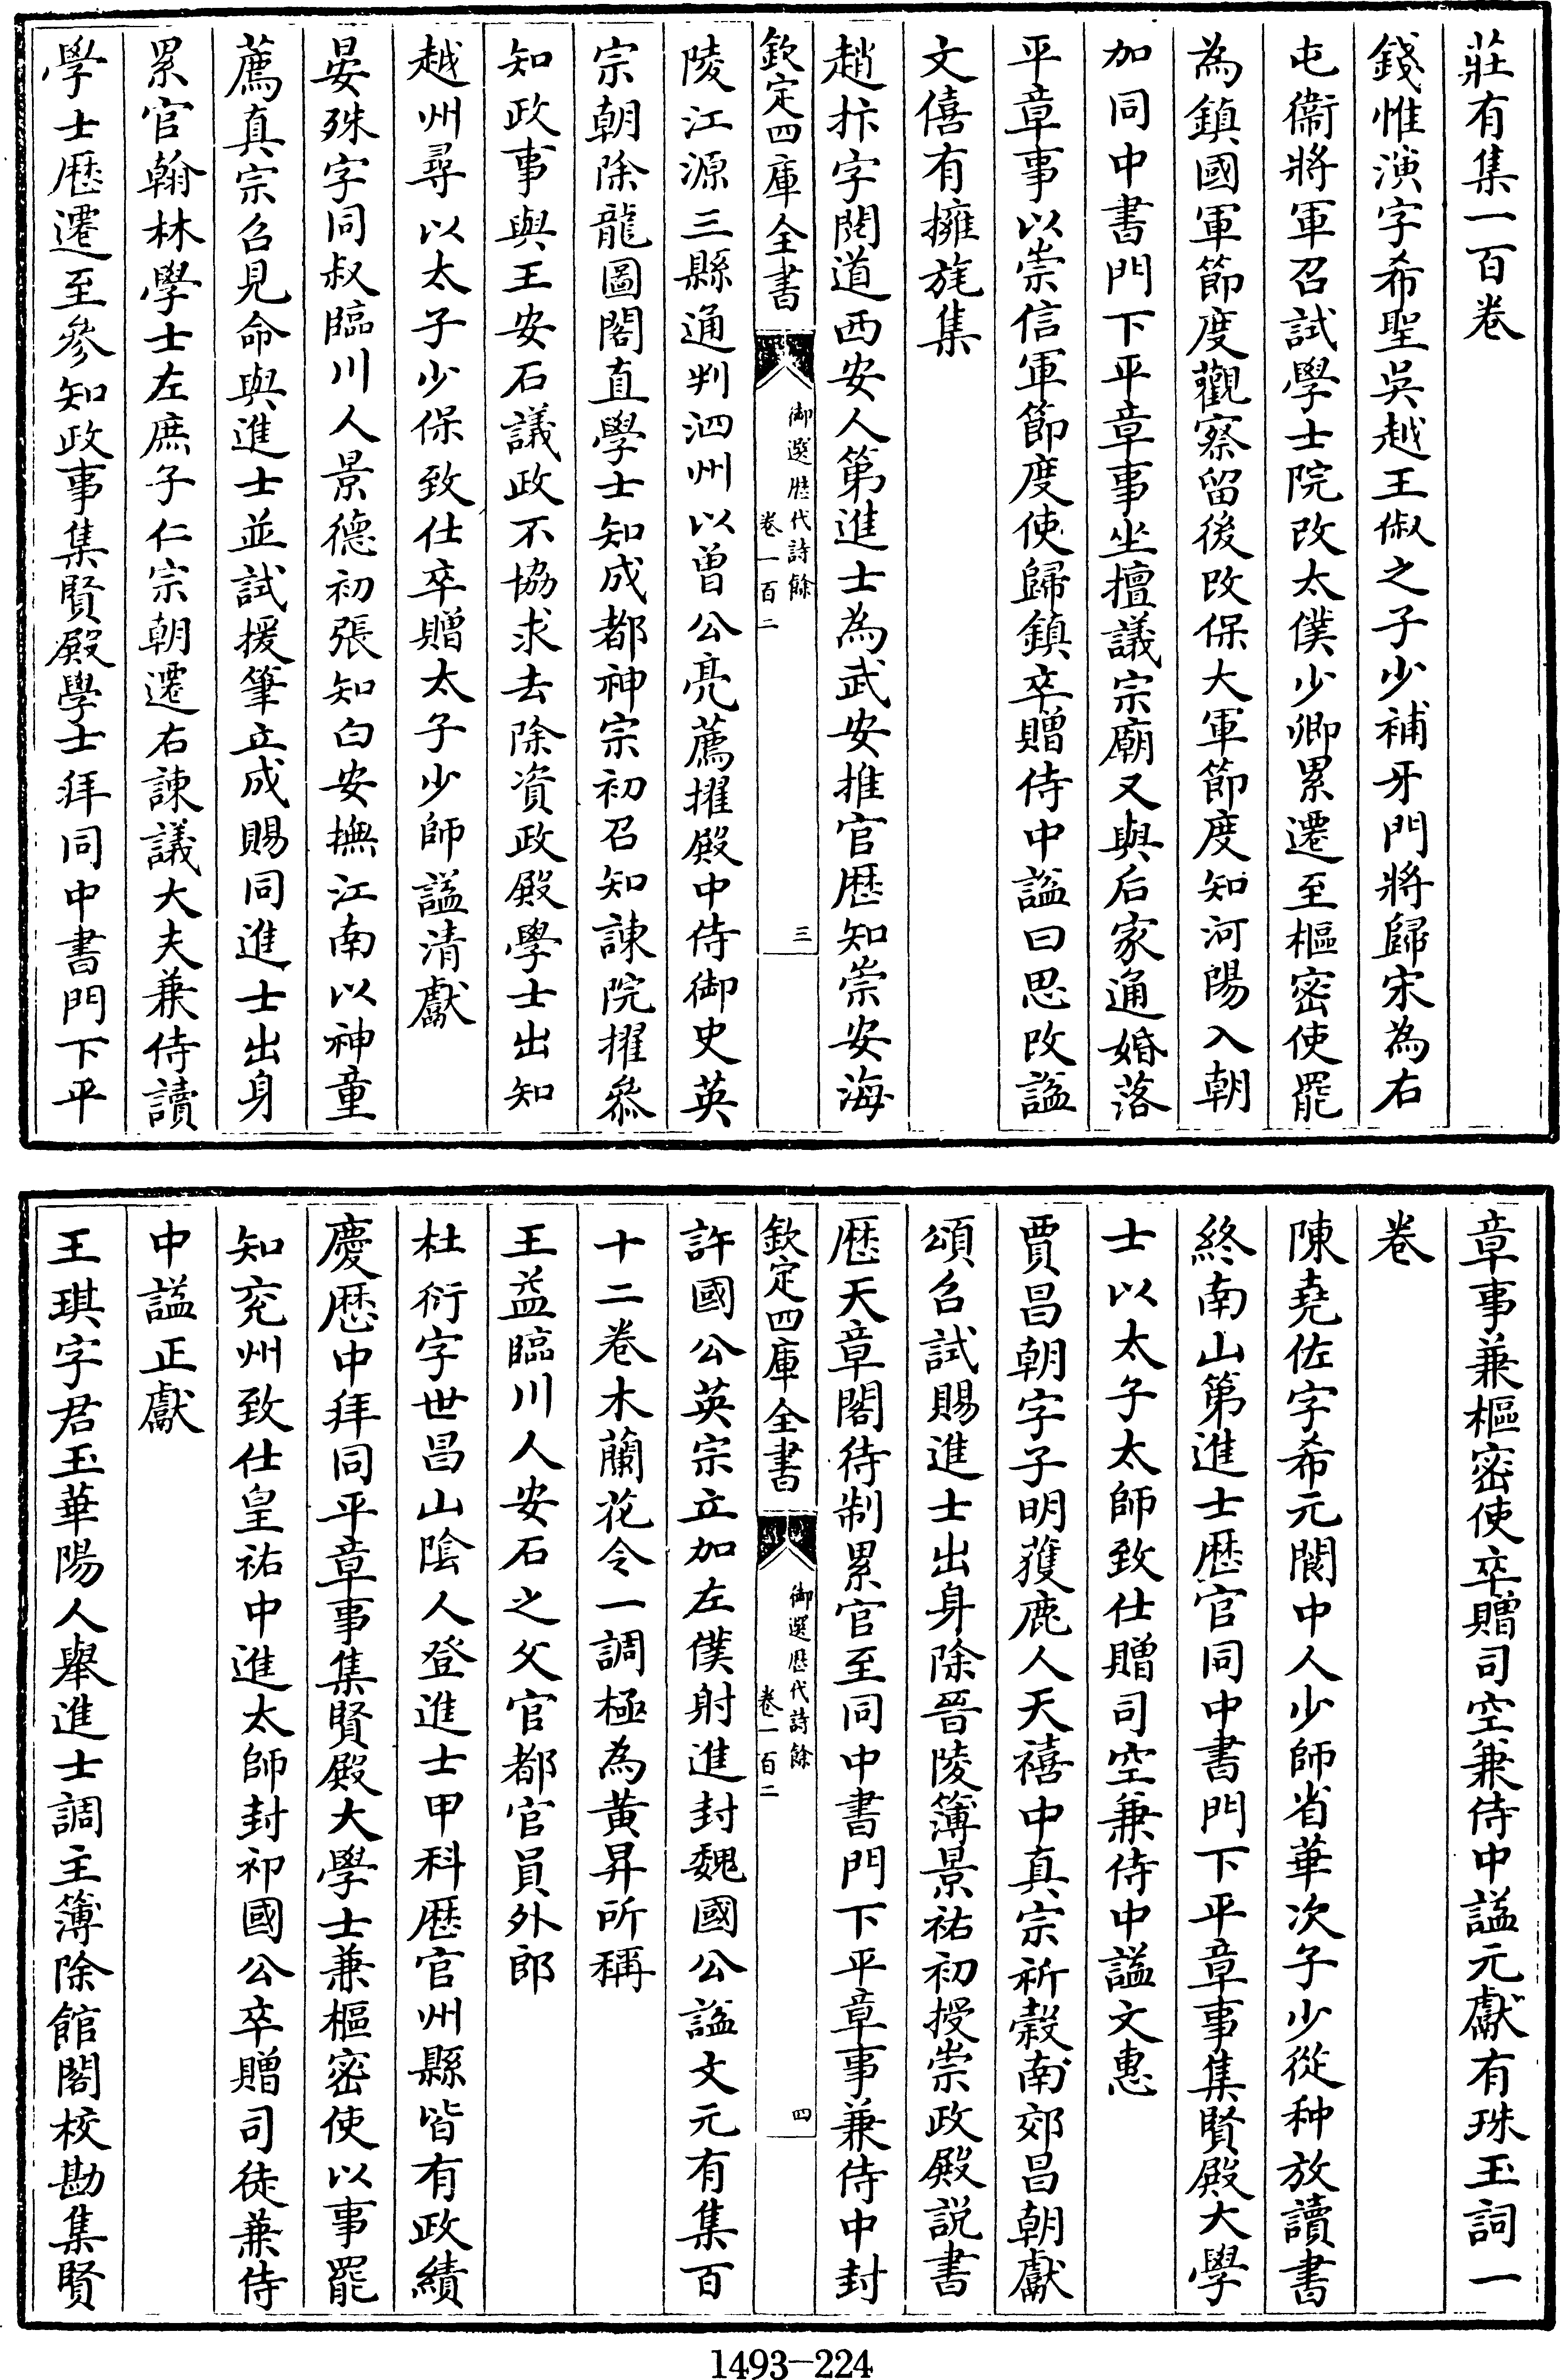 莊有集一百卷
錢惟演字希聖吳越王俶之子少補牙門將歸宋為右
屯衞將軍召試學士院改太僕少卿累遷至樞密使罷
為鎮國軍節度觀察留後改保大軍節度知河陽入朝
加同中書門下平章事坐擅議宗廟又與后家通婚落
平章事以崇信軍節度使歸鎮卒贈侍中諡曰思改諡
文僖有擁旄集
趙抃字閱道西安人第進士為武安推官歴知崇安海
欽定四庫全書
御選歴代詩餘
卷一百二
三
陵江源三縣通判泗州以曾公亮薦擢殿中侍御史英
宗朝除龍圖閣直學士知成都神宗初召知諫院擢叅
知政事與王安石議政不協求去除資政殿學士出知
越州尋以太子少保致仕卒贈太子少師諡清獻
晏殊字同叔臨川人景德初張知白安撫江南以神童
薦真宗召見命與進士並試援筆立成賜同進士出身
累官翰林學士左庶子仁宗朝遷右諫議大夫兼侍讀
學士歴遷至參知政事集賢殿學士拜同中書門下平
章事兼樞密使卒贈司空兼侍中諡元獻有珠玉詞一
卷
陳堯佐字希元閬中人少師省華次子少從种放讀書
終南山第進士歴官同中書門下平章事集賢殿大學
士以太子太師致仕贈司空兼侍中諡文惠
賈昌朝字子明獲鹿人天禧中真宗祈穀南郊昌朝獻
頌召試賜進士出身除晉陵簿景祐初授崇政殿説書
歴天章閣待制累官至同中書門下平章事兼侍中封
欽定四庫全書
御選歴代詩餘
卷一百二
四
許國公英宗立加左僕射進封魏國公諡文元有集百
十二卷木蘭花令一調極為黄昇所稱
王益臨川人安石之父官都官員外郎
杜衍字世昌山陰人登進士甲科歴官州縣皆有政績
慶歴中拜同平章事集賢殿大學士兼樞密使以事罷
知兖州致仕皇祐中進太師封祁國公卒贈司徒兼侍
中諡正獻
王琪字君玉華陽人舉進士調主簿除館閣校勘集賢
1493-224